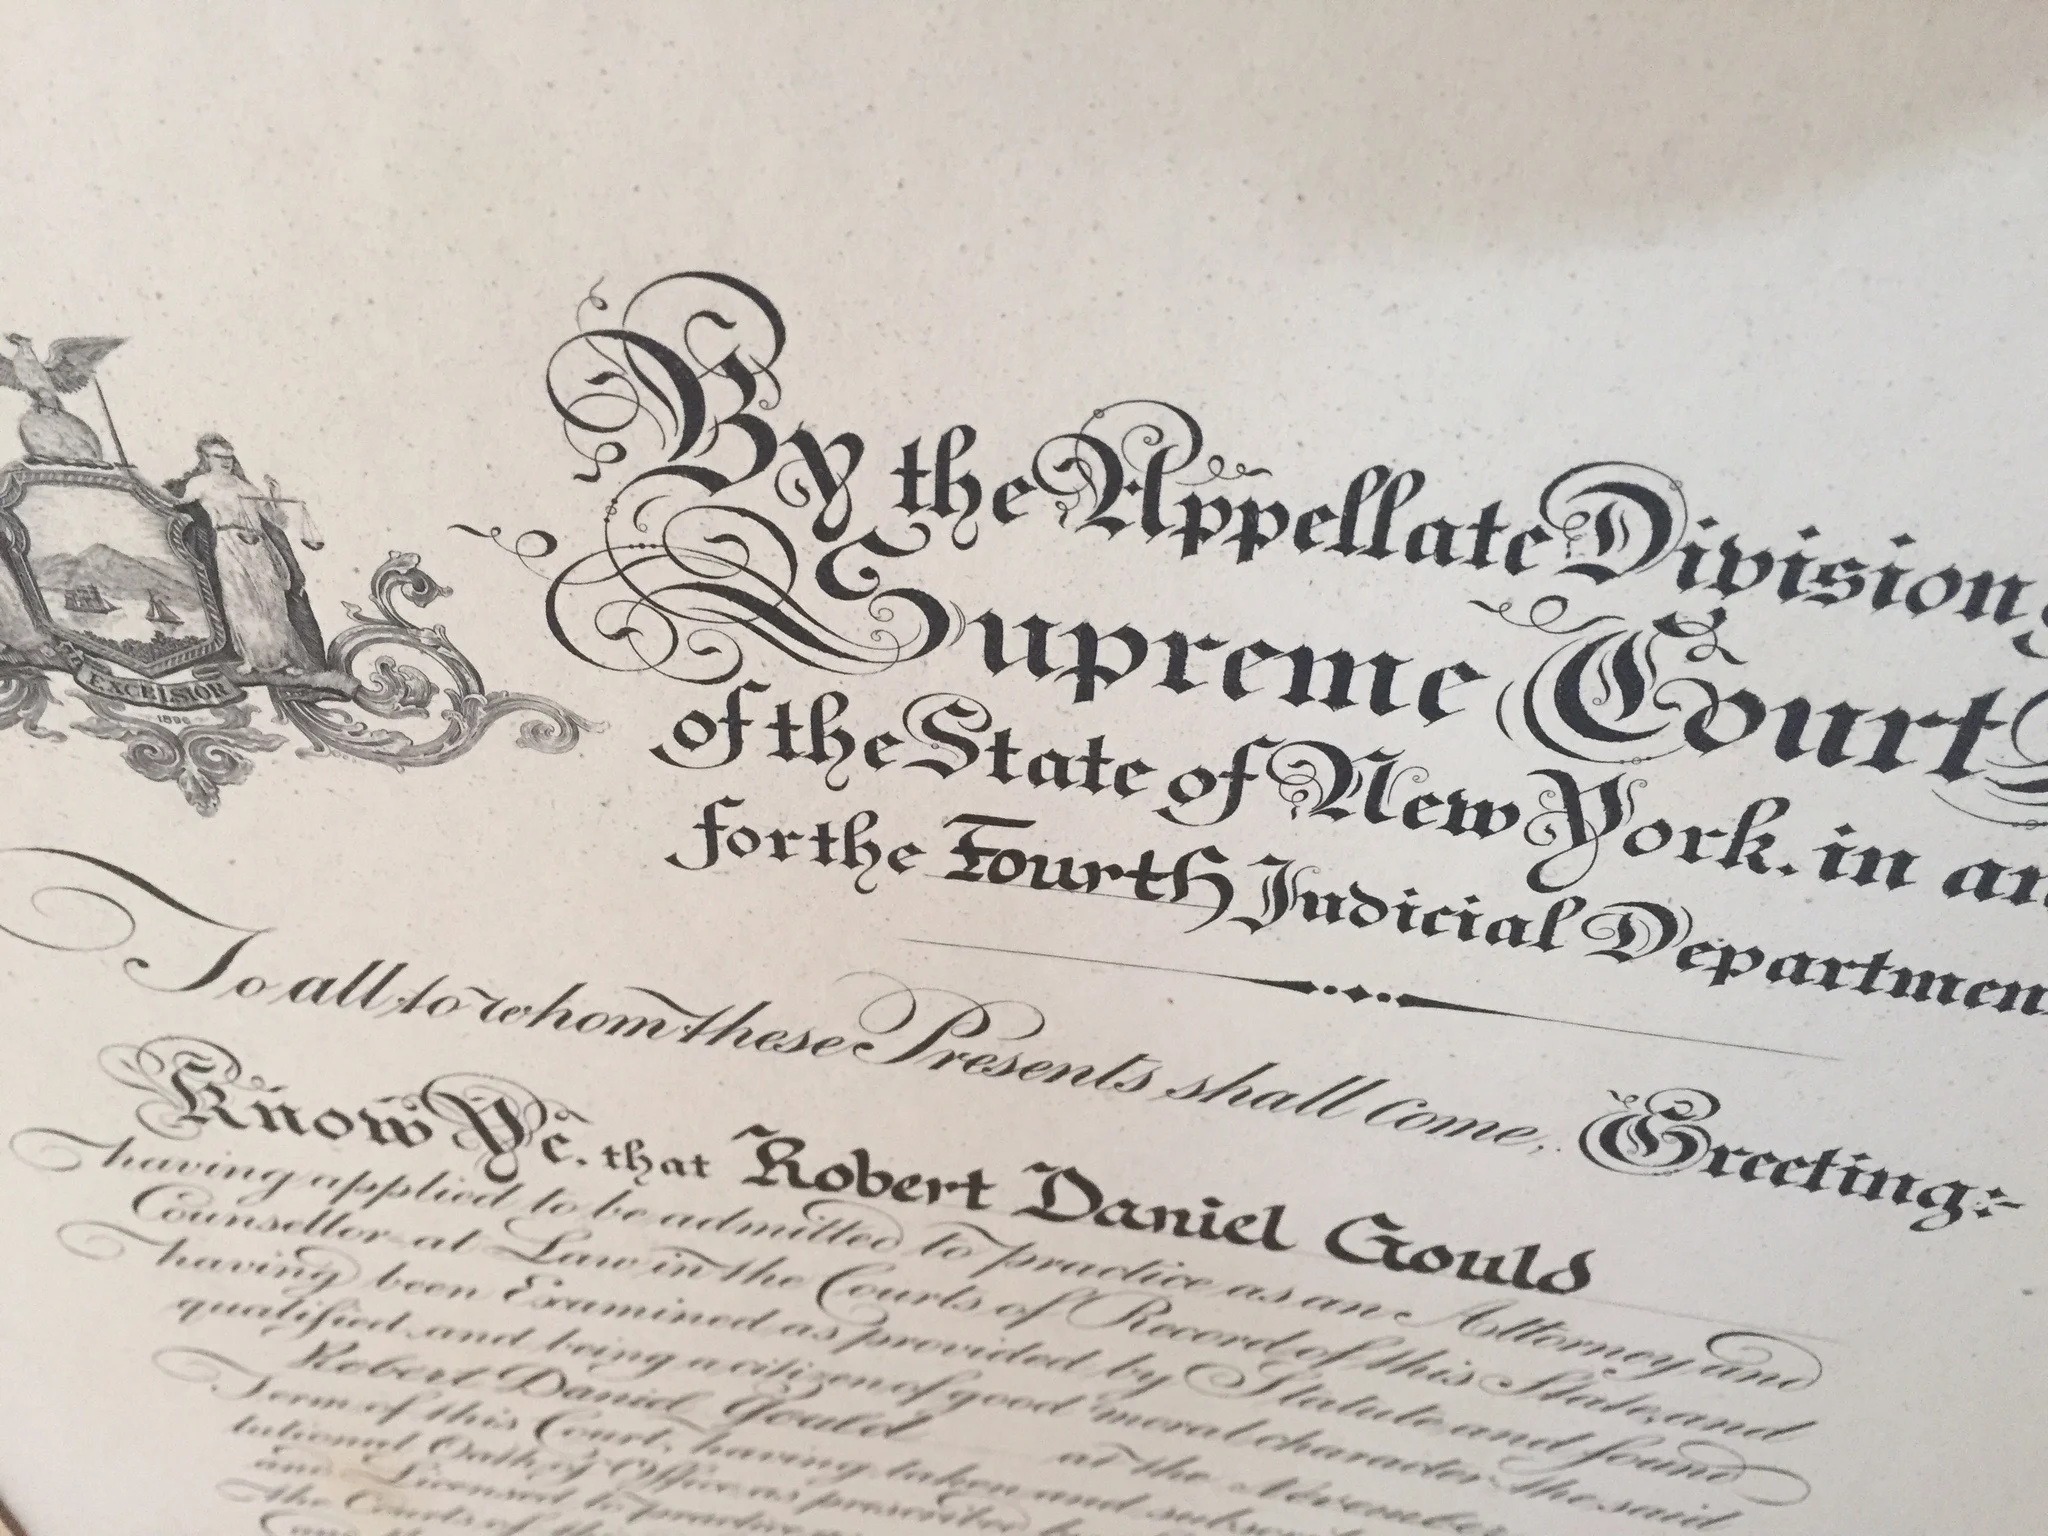 EXCELSIOR
1896
By the Appellate Division
Supreme Court
of the State of New York, in an
for the Fourth Judicial Departmen
To all to whom these Presents shall come, Greeting:
Know Ye, that Robert Daniel Gould
having applied to be admitted to practice as an Attorney and
Counsellor at Law in the Courts of Record of this State, and
having been Examined as provided by Statute and found
qualified and being a citizen of good moral character the said
Robert Daniel Gould at the November
Term of this Court, having taken and subscr
tutional Oath of Office as prescribed
and Licensed to practice
the Courts of